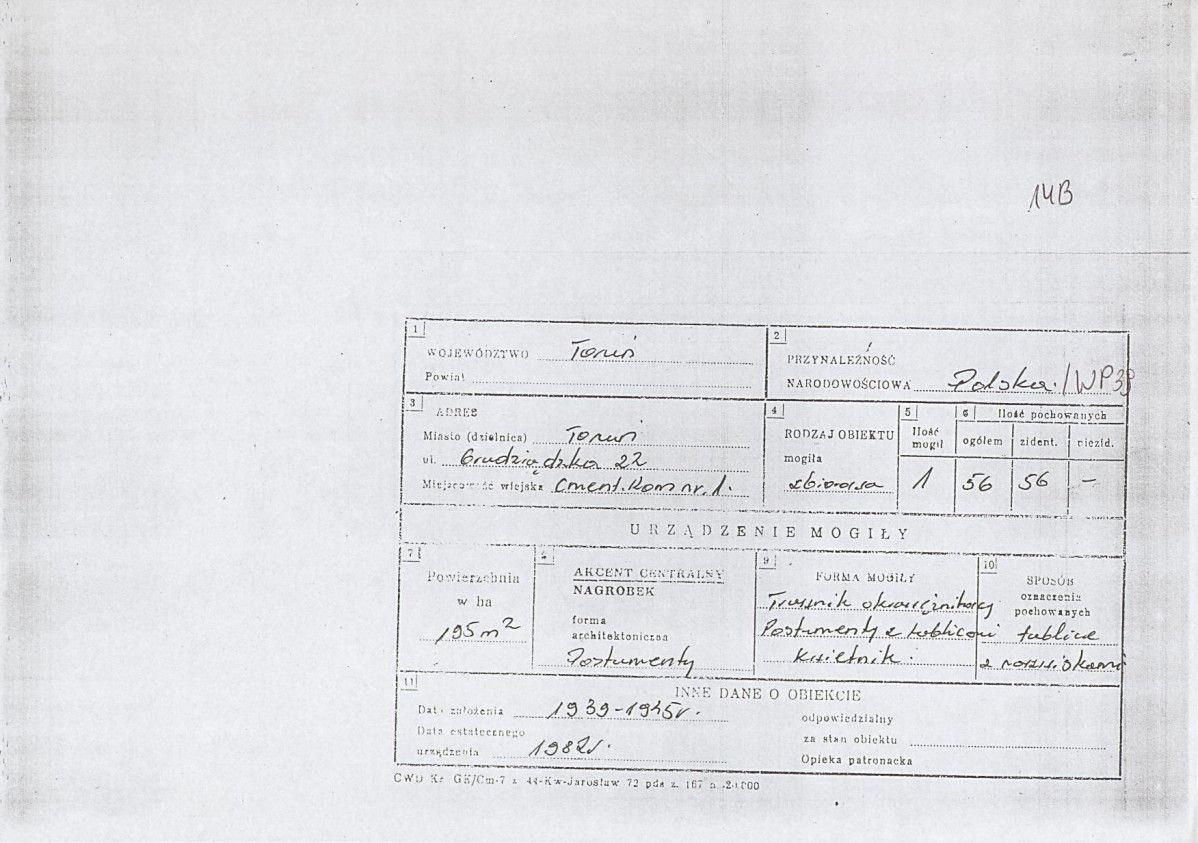 14B
1
WOJEWÓDZTWO Toruń
Powiat
2
PRZYNALEŻNOŚĆ
NARODOWOŚCIOWA Polska/WP39
3
ADRES
Miasto (dzielnica) Toruń
ul. Grudziądzka 22
Miejscowość wiejska Cment. Kom nr. 1.
4
RODZAJ OBIEKTU
mogiła
zbiorosa
5
Ilość
mogił
1
6 Ilość pochowanych
ogółem zident. niezid.
56 56 –
URZĄDZENIE MOGIŁY
7
Powierzchnia
w ha
195 m²
8
AKCENT CENTRALNY
NAGROBEK
forma
architektoniczna
Postumenty
9
FORMA MOGIŁY
Trawnik
Postumenty z tablicami
kwietnik.
10
SPOSÓB
oznaczenia
pochowanych
tablice
z nazwiskami
11
INNE DANE O OBIEKCIE
Data założenia 1939-1945r.
Data ostatecznego
urządzenia 1982r.
odpowiedzialny
za stan obiektu
Opieka patronacka
CWD Kr GK/Cm-7 z 44-Kw-Jarosław 72 pds z. 167 n.